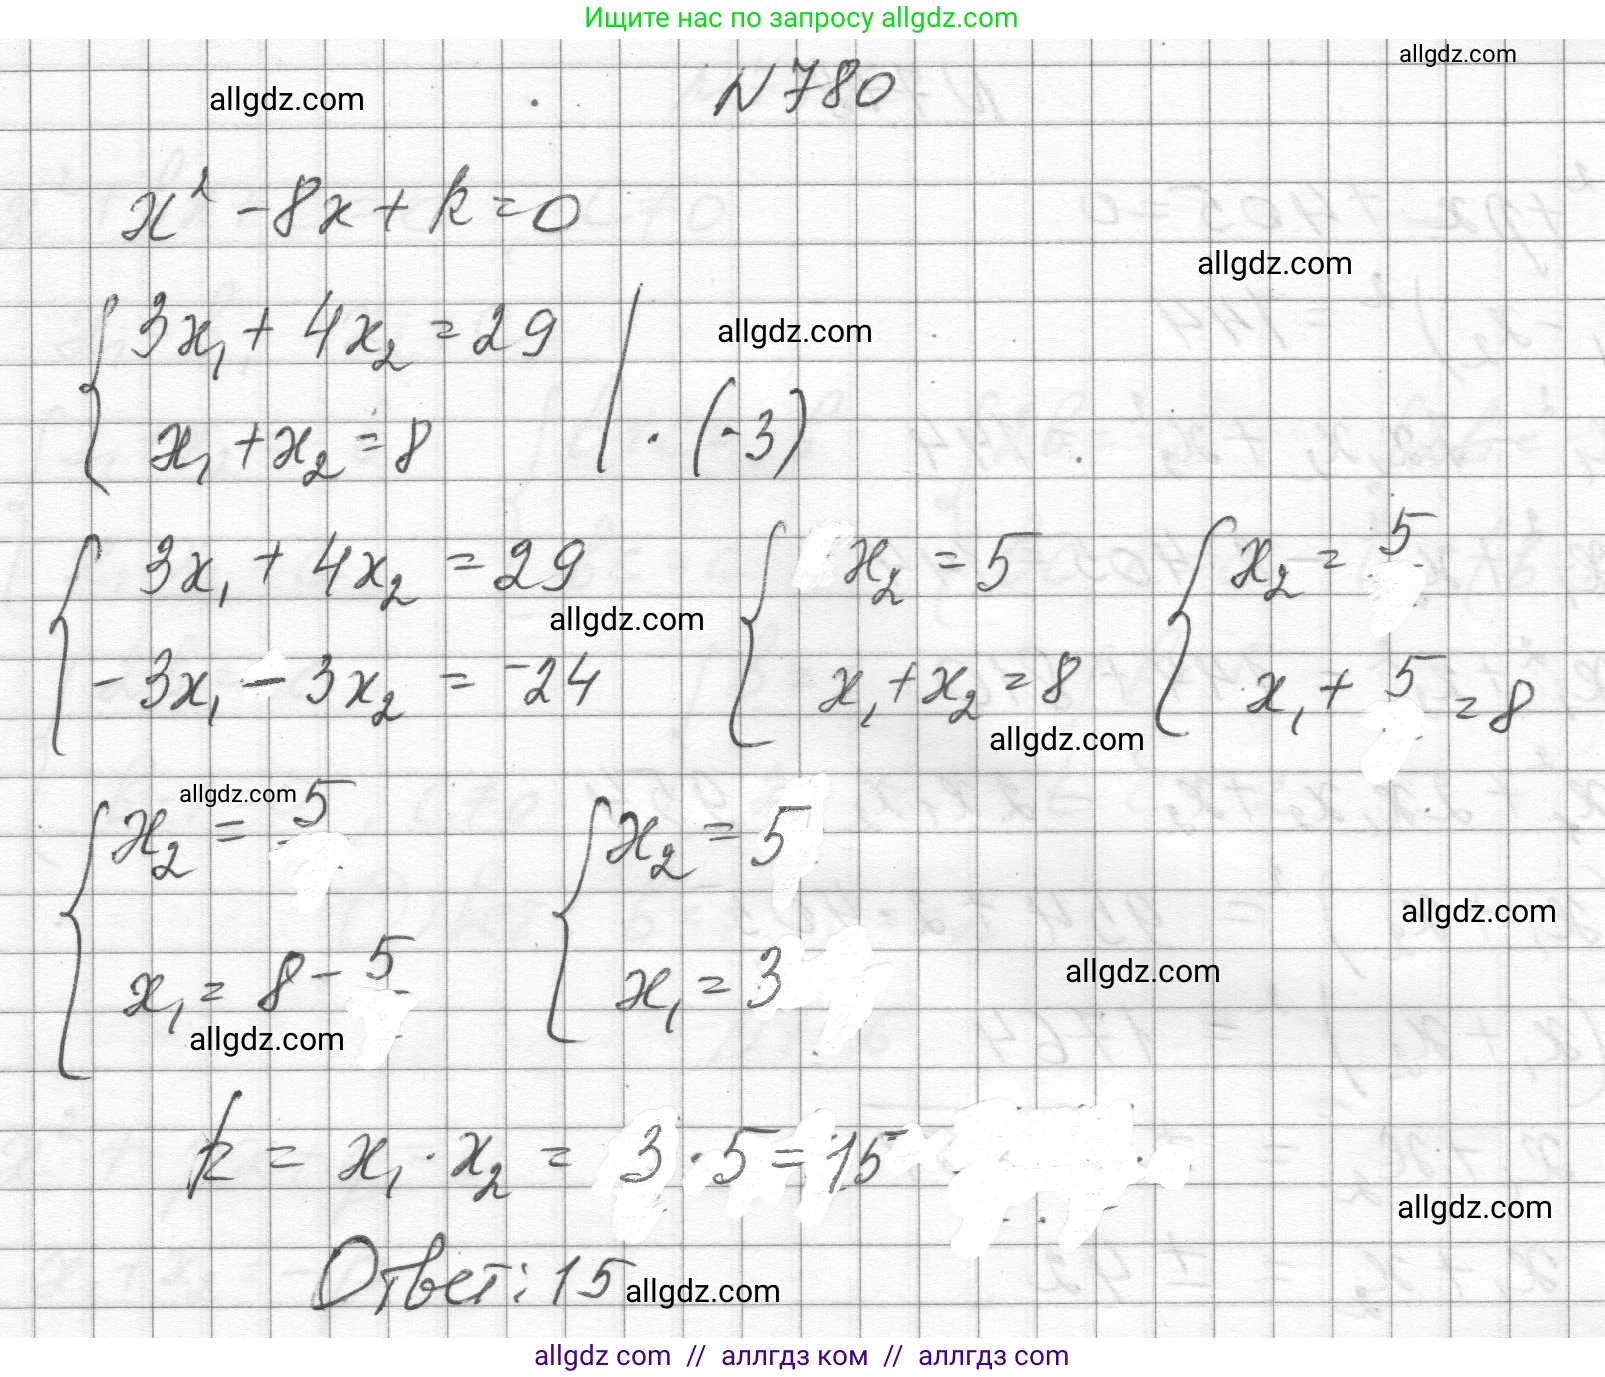 Ищите нас по запросу allgdz.com
allgdz.com
allgdz.com
N 780
x² - 8x + k = 0
allgdz.com
3x₁ + 4x₂ = 29
allgdz.com
x₁ + x₂ = 8 | · (-3)
3x₁ + 4x₂ = 29 x₂ = 5 x₂ = 5
allgdz.com
-3x₁ - 3x₂ = -24 x₁ + x₂ = 8 x₁ + 5 = 8
allgdz.com
allgdz.com
x₂ = 5 x₂ = 5
allgdz.com
allgdz.com
x₁ = 8 - 5 x₁ = 3
allgdz.com
k = x₁ · x₂ = 3 · 5 = 15
allgdz.com
Ответ: 15
allgdz.com
allgdz com // аллгдз ком // аллгдз com